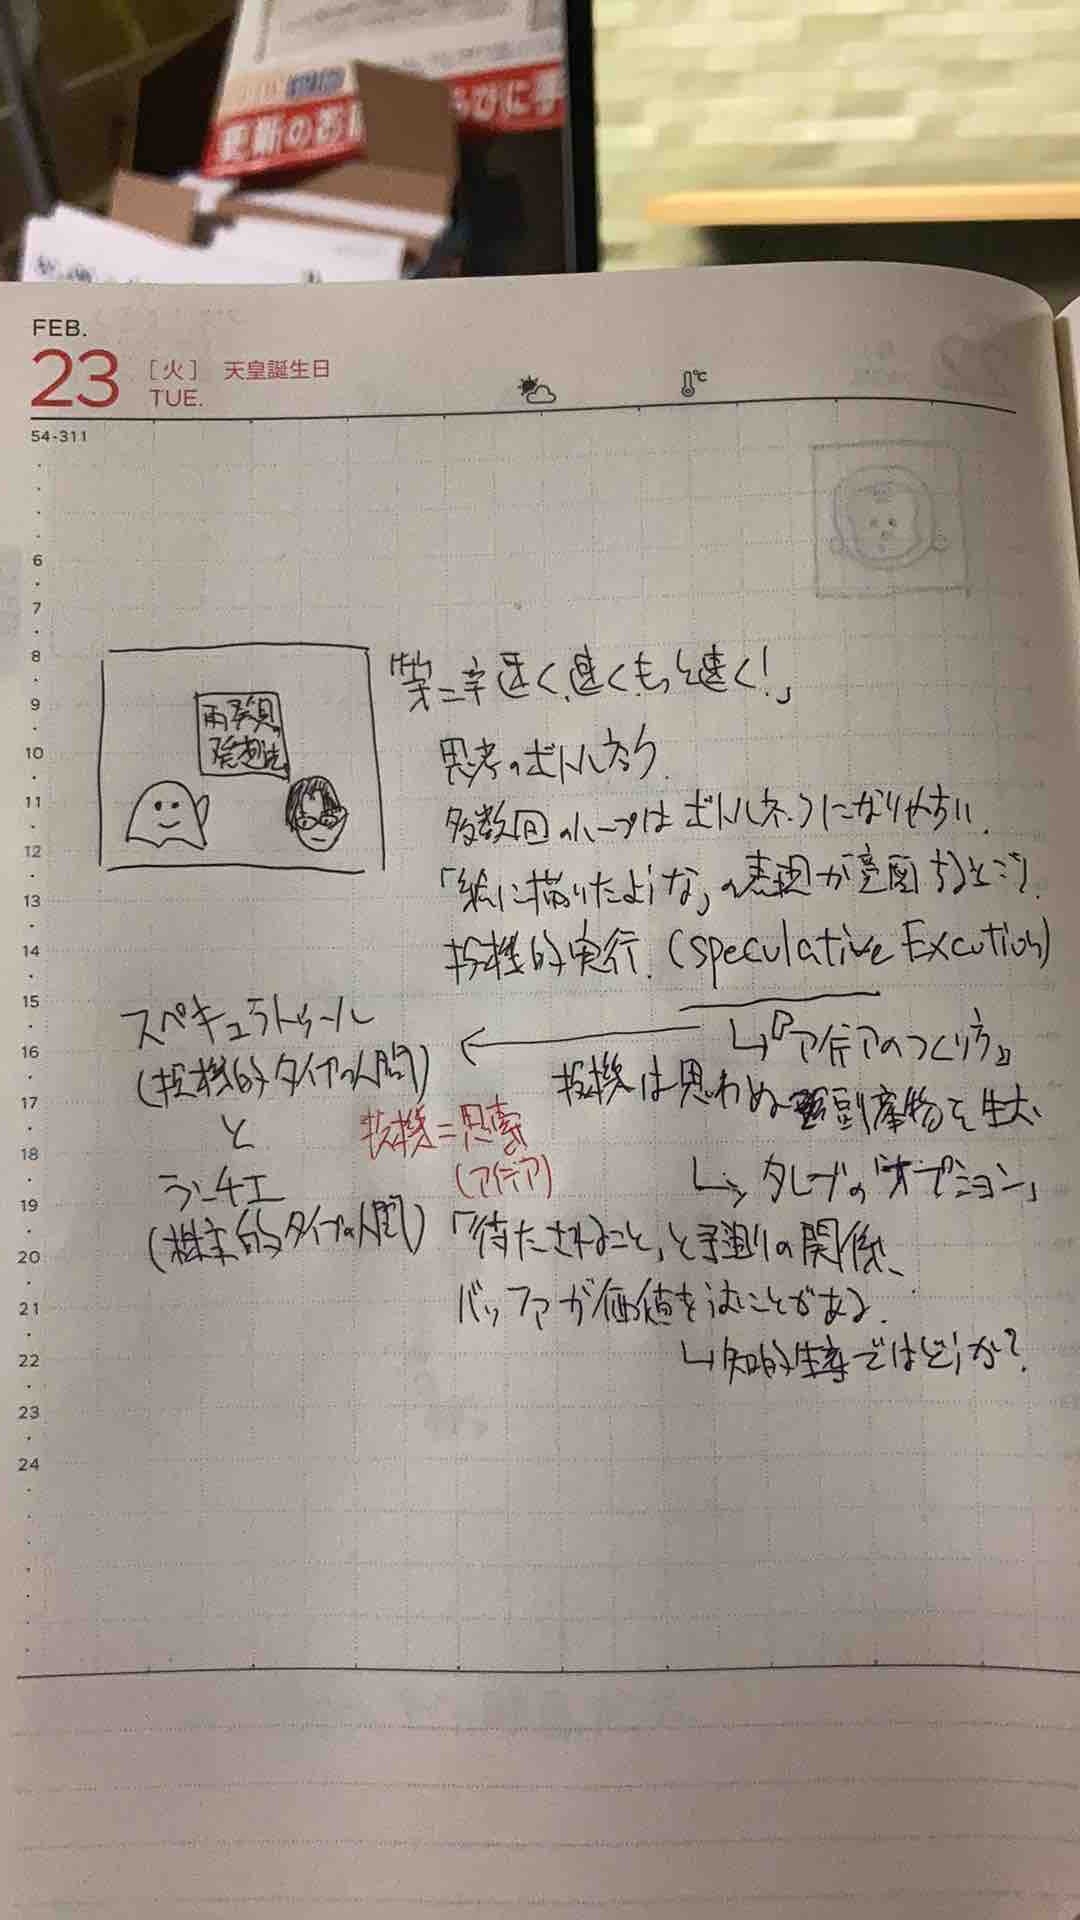 更新のお
らびに手
FEB.
23
[火] 天皇誕生日
TUE.
℃
54-311
6
7
8
9
10
11
12
13
14
15
16
17
18
19
20
21
22
23
24
再発見の
発想法
「第二章 速く、速く、もっと速く!」
思考のボトルネック
多数回のループはボトルネックになりやすい
「絵に描いたような」の表現が意図するところ
投機的実行.(speculative Excution)
↳『アイデアのつくり方』
スペキュラトゥール
(投機的タイプの人間)
と
ランチエ
(株主的タイプの人間)
投機=思索
(アイデア)
投機は思わぬ副産物を生む
↳タレブの「オプション」
「待たされること」と手遅りの関係、
バッファが価値をうむことがある.
↳知的生産ではどうか?